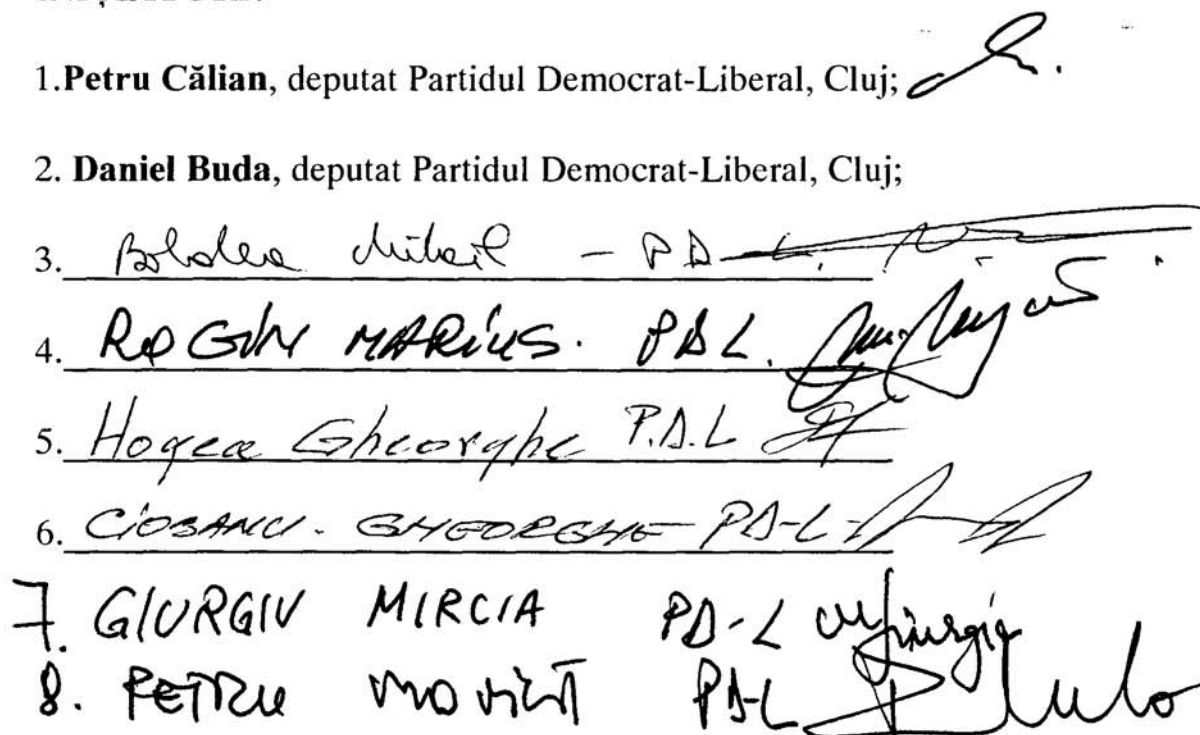 1.Petru Călian, deputat Partidul Democrat-Liberal, Cluj;
2. Daniel Buda, deputat Partidul Democrat-Liberal, Cluj;
3. Boldea Mihail - PD-L.
4. ROGIN MARIUS. PDL.
5. Hogea Gheorghe P.D.L
6. CIOBANU. GHEORGHE - PD-L-
7. GIURGIV MIRCIA PD-L
8. PETRU MOVILĂ PD-L